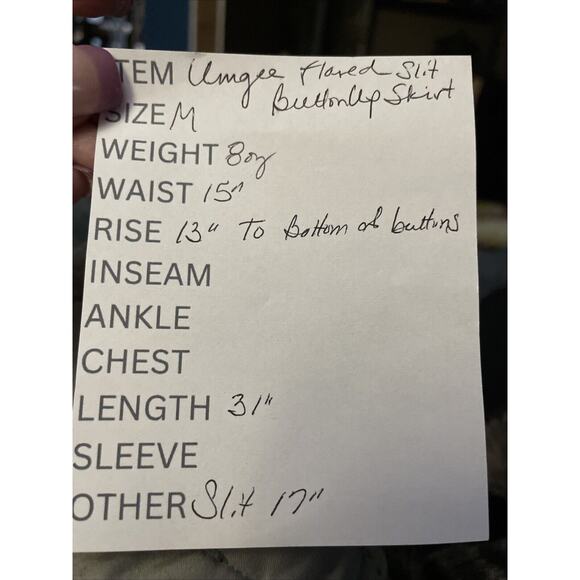 ITEM Umgee Flared Slit
Button Up Skirt
SIZE M
WEIGHT 8oz
WAIST 15"
RISE 13" To Bottom of buttons
INSEAM
ANKLE
CHEST
LENGTH 31"
SLEEVE
OTHER Slit 17"